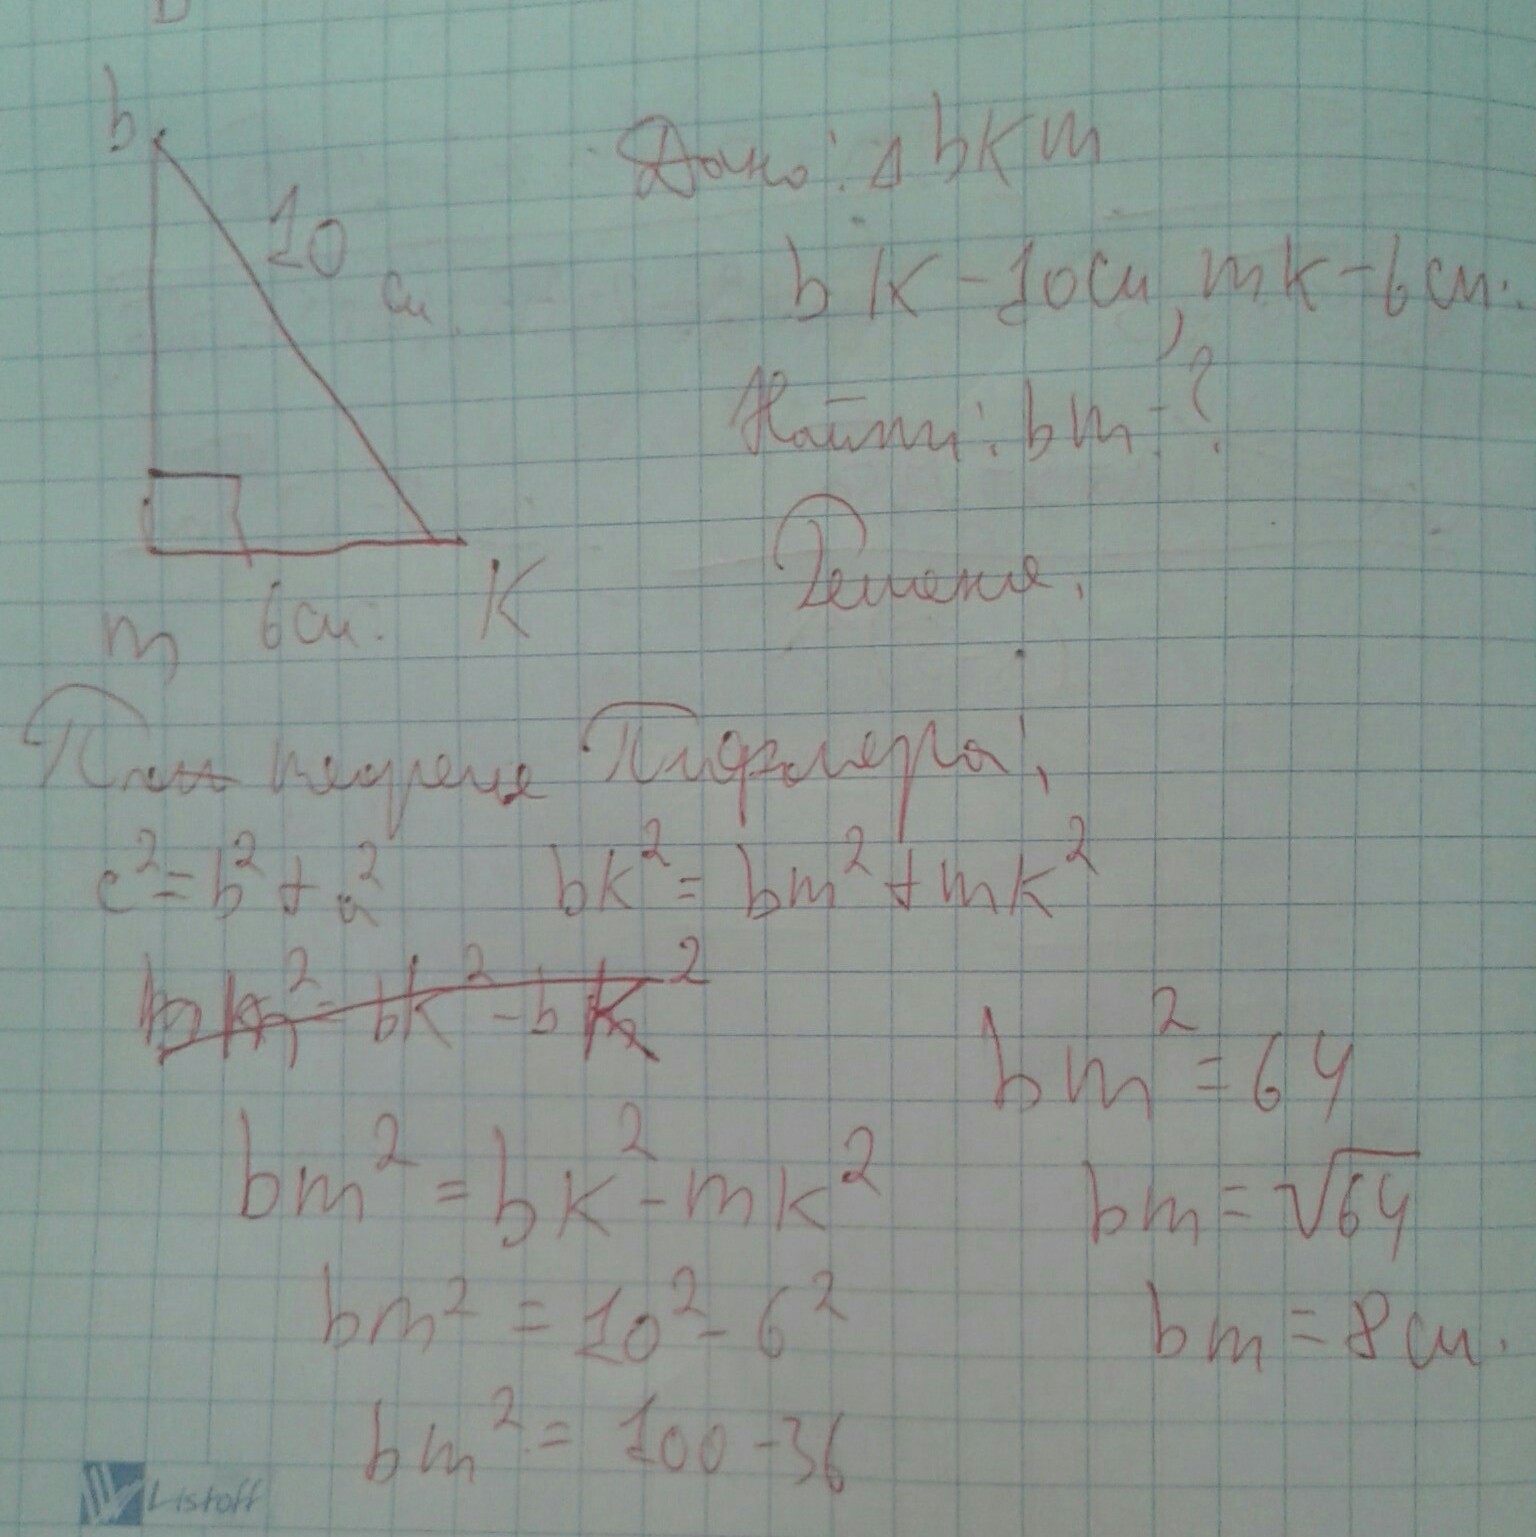 b
10
см
m 6см. K
Дано: Δ bkm
bK - 10см, mk - 6см.
Найти: bm - ?
Решения.
теорема Пифагора:
c²=b²+a² bk²= bm²+mk²
bm²=bk²-mk²
bm² = 10²-6²
bm² = 100-36
bm²=64
bm=√64
bm=8см.
Listoff